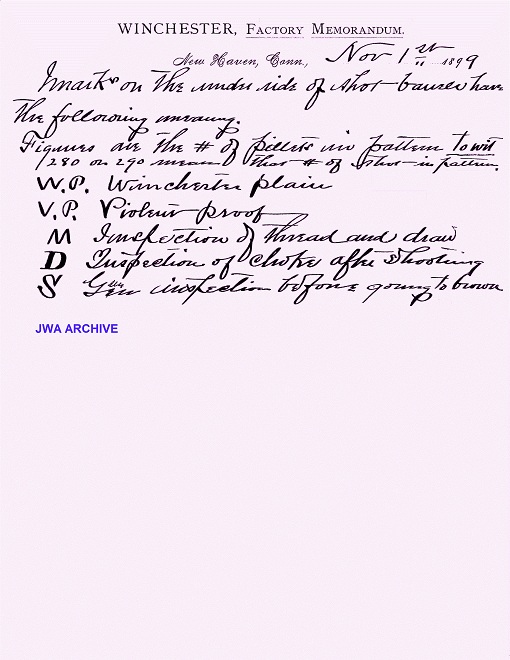 WINCHESTER, FACTORY MEMORANDUM.
New Haven, Conn., Nov 1st 1899
Marks on the under side of shot barrels have
the following meaning.
Figures are the # of pellets in pattern to wit
280 or 290 means that # of shot in pattern.
W.P. Winchester plain
V.P. Violent proof
M Inspection of thread and draw
D Inspection of choke after shooting
S Gen inspection before going to brown
JWA ARCHIVE